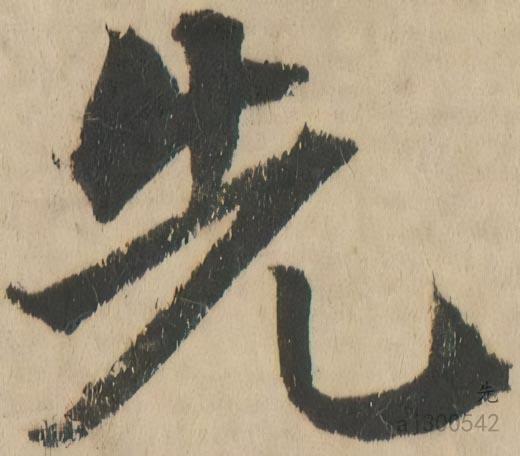 先
先
a1300542